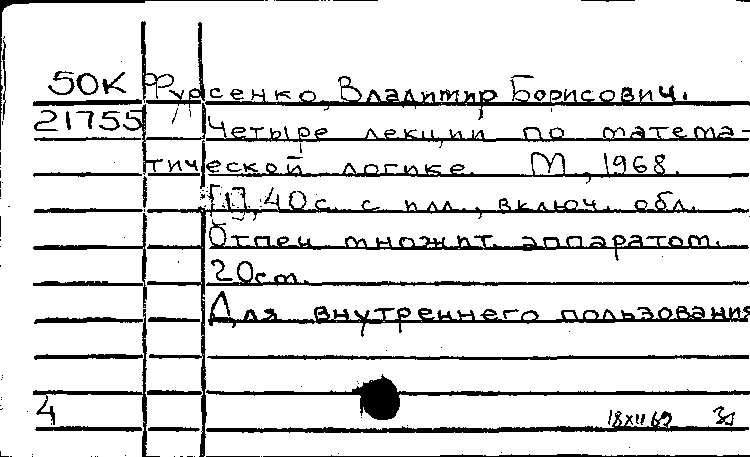 50К Фурсенко, Владимир Борисович.
21755 Четыре лекции по матема-
тической логике. М., 1968.
[1], 40с. с илл., включ. обл.
Отпеч. множит. аппаратом.
20см.
Для внутреннего пользования
4